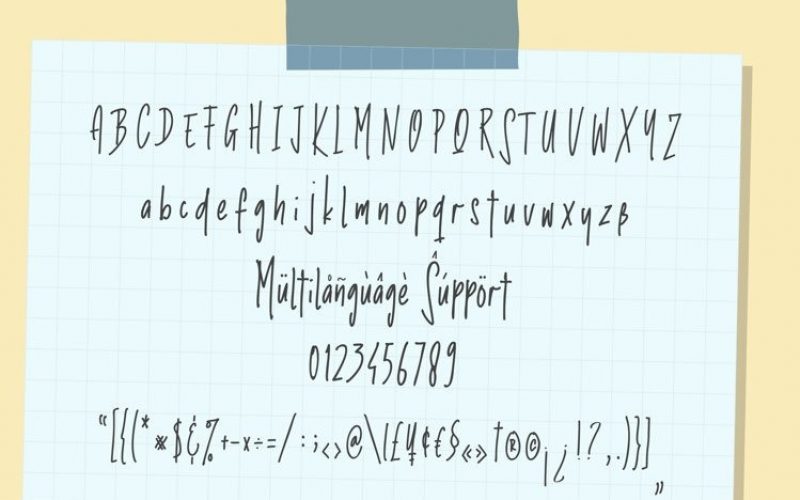 A B C D E F G H I J K L M N O P Q R S T U V W X Y Z
a b c d e f g h i j k l m n o p q r s t u v w x y z ß
Mültilåñgùâgè Ŝúppört
0123456789
“[{(* $ % + - x ÷ = / : ; < > @ \ | £ ¥ ¢ € § « » † ® © ¡ ¿ ! ? , . ) } ] ”